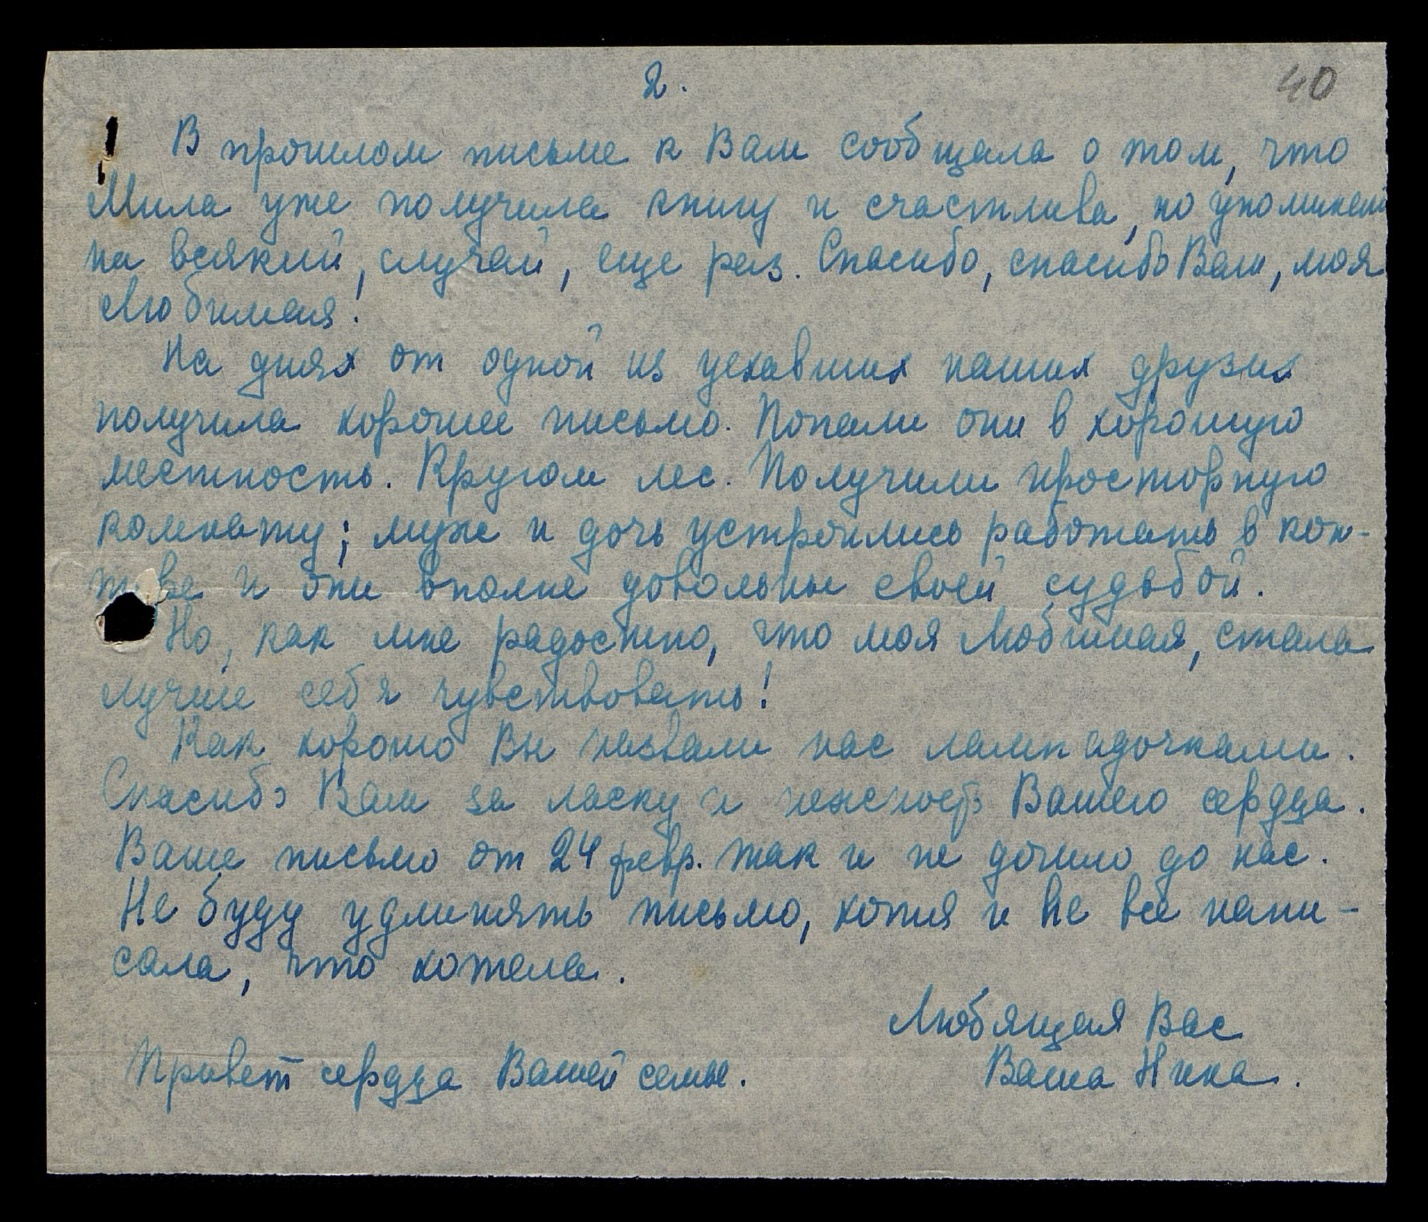 2.
40
В прошлом письме к Вам сообщала о том, что
Мила уже получила книгу и счастлива, но упоминаю
на всякий, случай, еще раз. Спасибо, спасибо Вам, моя
Любимая!
На днях от одной из уехавших наших друзих
получила хорошее письмо. Попали они в хорошую
местность. Кругом лес. Получили просторную
комнату; муж и дочь устроились работать в кон-
т ве и они вполне довольны своей судьбой.
Но, как мне радостно, что моя Любимая, стала
лучше себя чувствовать!
Как хорошо Вы назвали нас лампадочками.
Спасибо Вам за ласку и нежность Вашего сердца.
Ваше письмо от 24 февр. так и не дошло до нас.
Не буду удлинять письмо, хотя и не все напи-
сала, что хотела.
Любящая Вас
Привет сердца Вашей семье.
Ваша Ника.